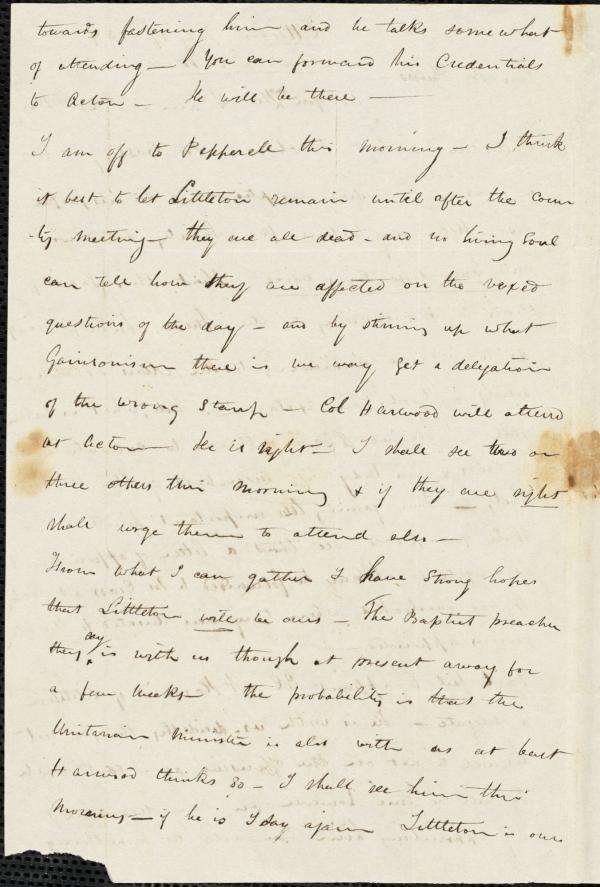 towards fastening him and he talks somewhat
of attending - You can forward his Credentials
to Acton - He will be there -
I am off to Pepperell this morning - I think
it best to let Littleton remain until after the coun
-ty meeting - they are all dead - and no living soul
can tell how they are affected on the vexed
questions of the day - and by stirring up what
Garrisonism there is we may get a delegation
of the wrong stamp - Col Harwood will attend
at Acton He is right - I shall see two or
three others this morning & if they are right
shall urge them to attend also -
From what I can gather I have strong hopes
that Littleton will be ours - The Baptist preacher
they say is with us though at present away for
a few weeks - the probability is that the
Unitarian Minister is also with us at least
Harwood thinks so - I shall see him this
morning - if he is I say again Littleton is ours